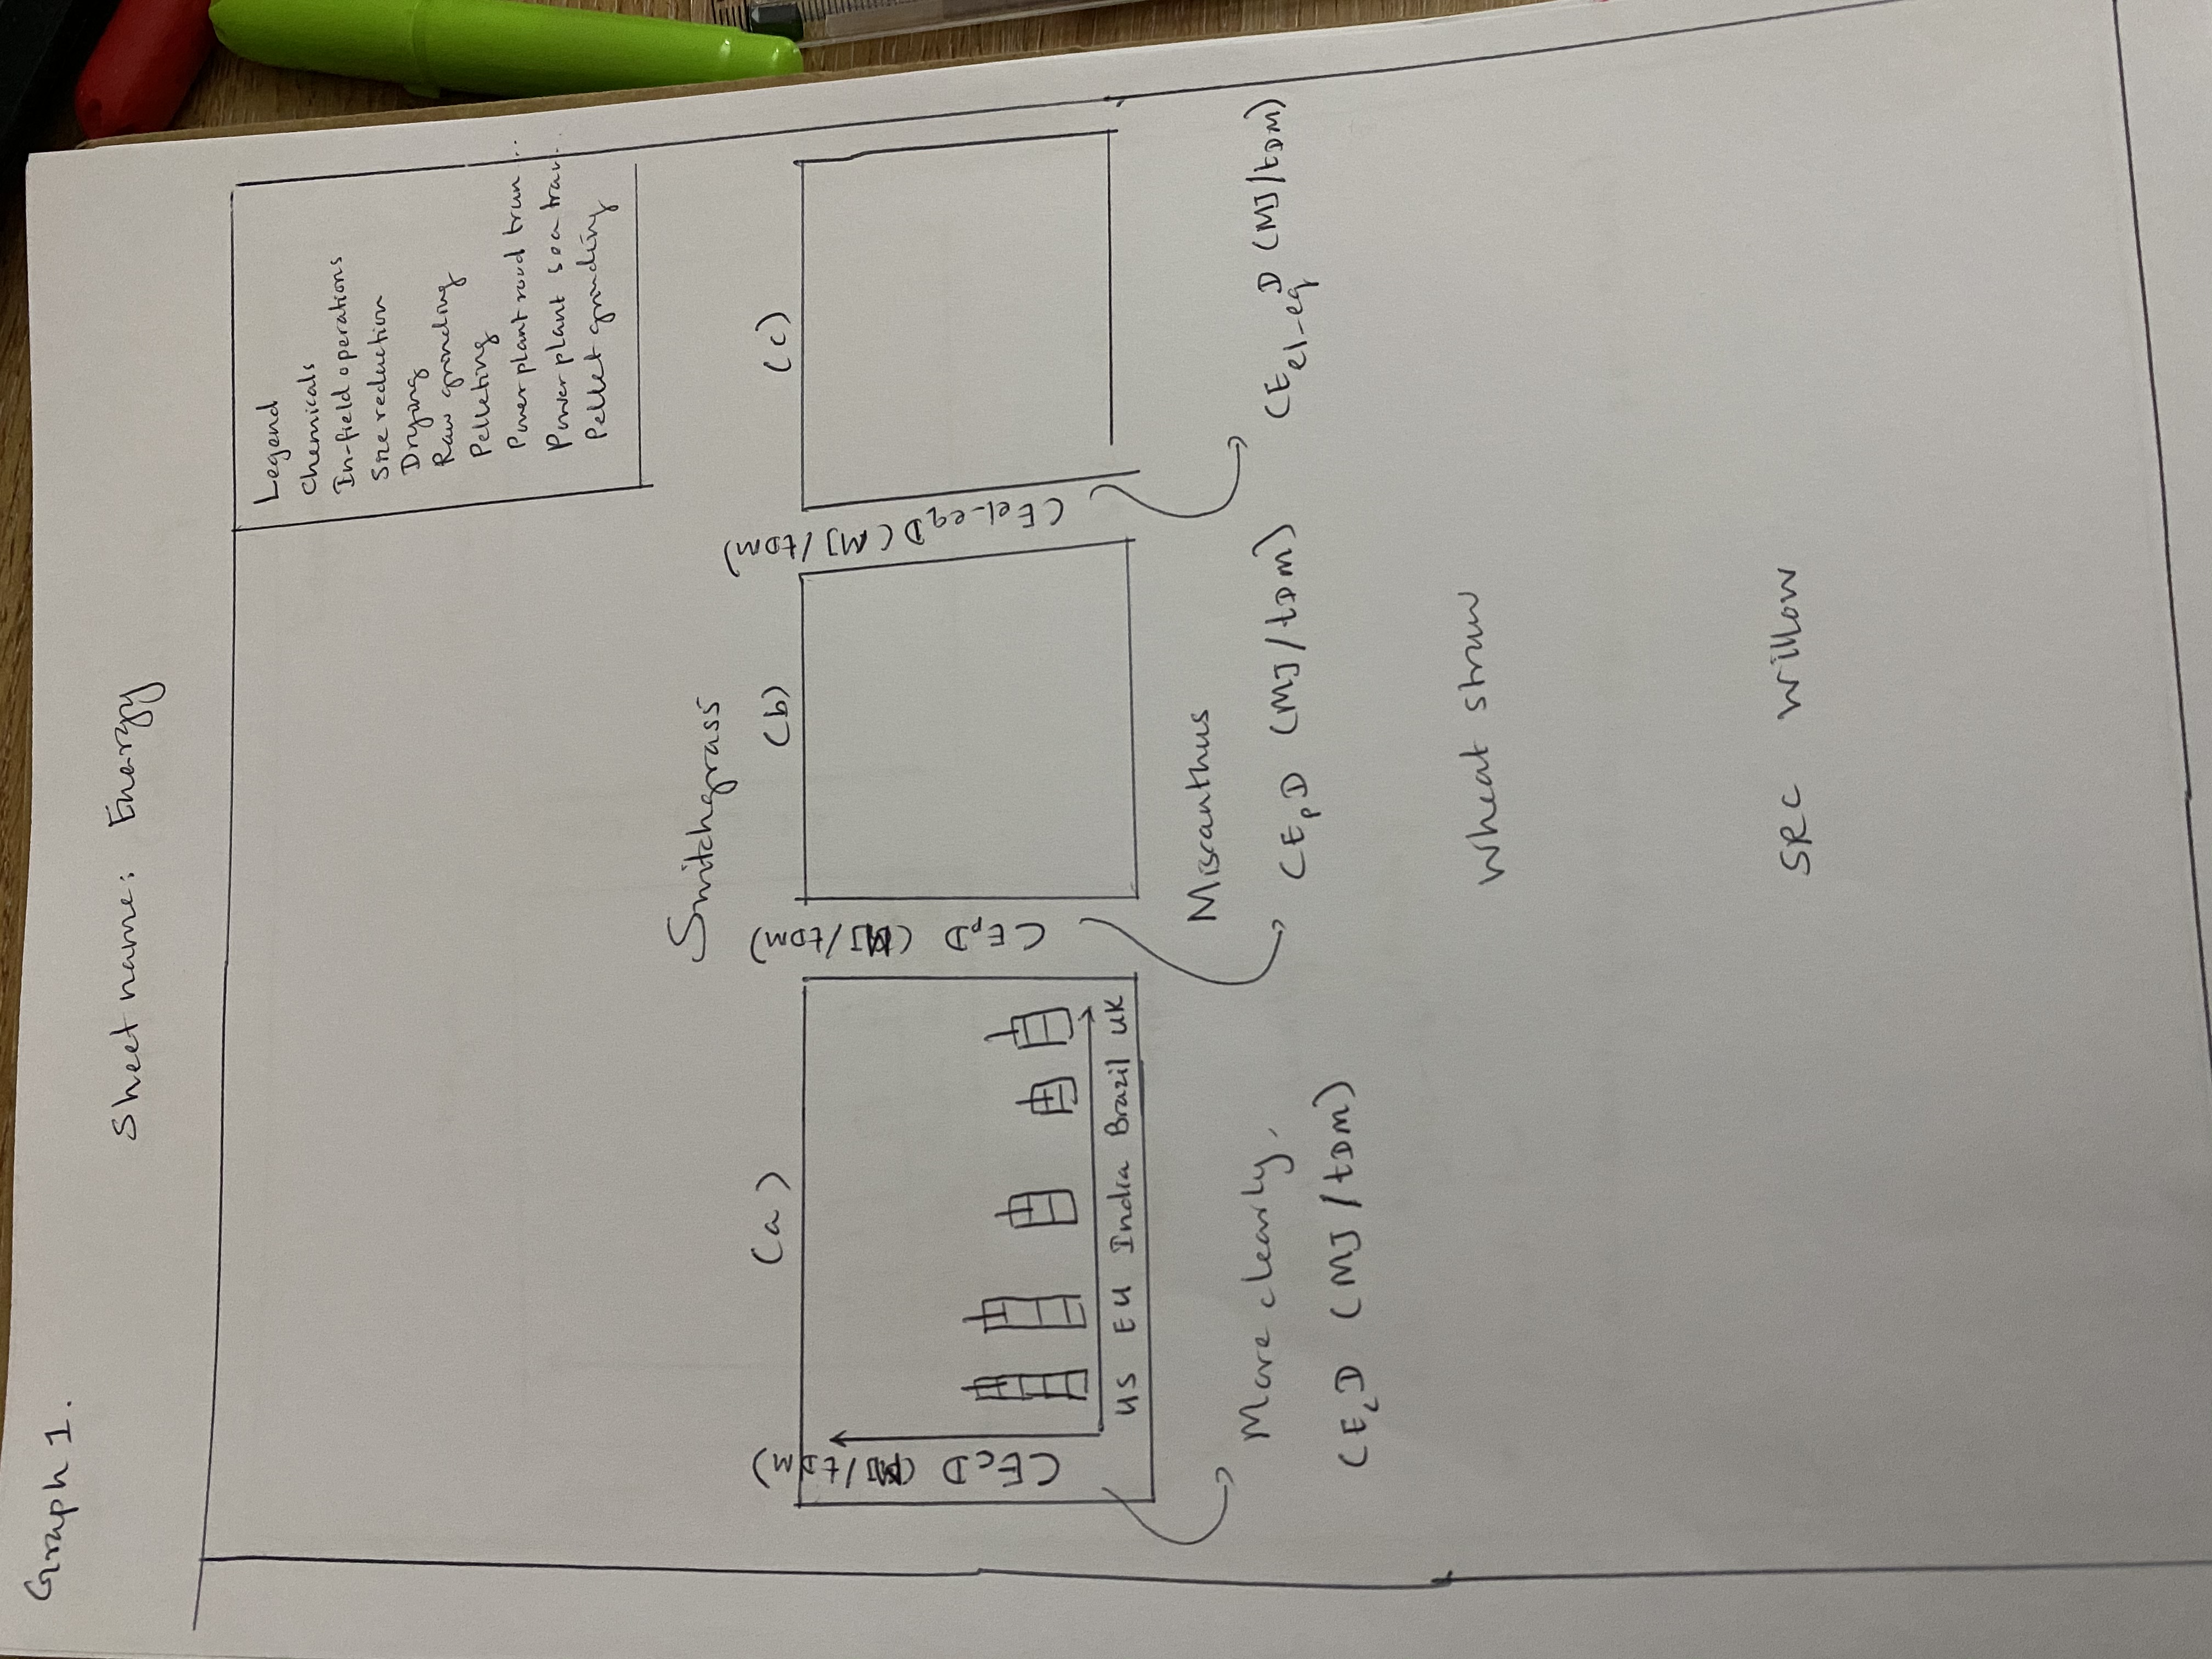 Graph 1.
Sheet name: Energy
Legend
Chemicals
In-field operations
Size reduction
Drying
Raw grinding
Pelleting
Power plant road tran...
Power plant sea tran..
Pellet grinding
Switchgrass
(a)
(b)
(c)
CEcD (MJ/tDM)
CEpD (MJ/tDM)
CEel-eqD (MJ/tDM)
US EU India Brazil UK
Miscanthus
More clearly,
CEcD (MJ/tDM)
CEpD (MJ/tDM)
CEel-eqD (MJ/tDM)
Wheat straw
SRC Willow